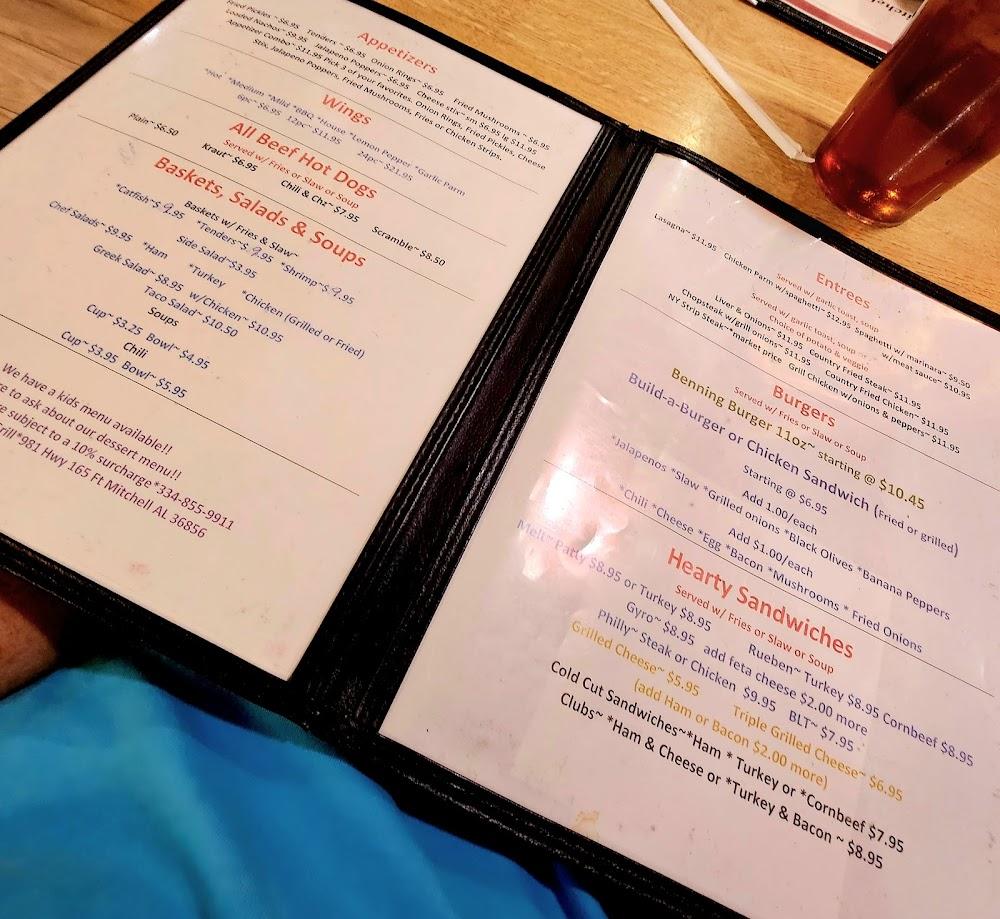 Appetizers
Fried Pickles ~ $6.95 Tenders ~ $6.95 Onion Rings~ $6.95 Fried Mushrooms ~ $6.95
Loaded Nachos~ $9.95 Jalapeno Poppers~ $6.95 Cheese stix~ sm $6.95 lg $11.95
Appetizer Combo~ $11.95 Pick 3 of your favorites. Onion Rings, Fried Pickles, Cheese
Stix, Jalapeno Poppers, Fried Mushrooms, Fries or Chicken Strips.
Wings
*Hot *Medium *Mild *BBQ *House *Lemon Pepper *Garlic Parm
6pc~ $6.95 12pc~ $11.95 24pc~ $21.95
All Beef Hot Dogs
Served w/ Fries or Slaw or Soup
Plain~ $6.50 Kraut~ $6.95 Chili & Chz~ $7.95 Scramble~ $8.50
Baskets, Salads & Soups
Baskets w/ Fries & Slaw~
*Catfish~$ 9.95 *Tenders~$ 9.95 *Shrimp~$ 9.95
Side Salad~$3.95
Chef Salads~ $9.95 *Ham *Turkey *Chicken (Grilled or Fried)
Greek Salad~ $8.95 w/Chicken~ $10.95
Taco Salad~ $10.50
Soups
Cup~ $3.25 Bowl~ $4.95
Chili
Cup~ $3.95 Bowl~ $5.95
We have a kids menu available!!
to ask about our dessert menu!!
subject to a 10% surcharge *334-855-9911
Grill*981 Hwy 165 Ft Mitchell AL 36856
Entrees
Served w/ garlic toast, soup
Lasagna~ $11.95 Chicken Parm w/spaghetti~ $12.95 Spaghetti w/ marinara~ $9.50
w/meat sauce~ $10.95
Served w/ garlic toast, soup or
Choice of potato & veggie
Liver & Onions~ $11.95 Country Fried Steak~ $11.95
Chopsteak w/grill onions~ $11.95 Country Fried Chicken~ $11.95
NY Strip Steak~*market price Grill Chicken w/onions & peppers~ $11.95
Burgers
Served w/ Fries or Slaw or Soup
Benning Burger 11oz~ starting @ $10.45
Build-a-Burger or Chicken Sandwich (Fried or grilled)
Starting @ $6.95
Add 1.00/each
*Jalapenos *Slaw *Grilled onions *Black Olives *Banana Peppers
Add $1.00/each
*Chili *Cheese *Egg *Bacon *Mushrooms * Fried Onions
Hearty Sandwiches
Served w/ Fries or Slaw or Soup
Melt~ Patty $8.95 or Turkey $8.95 Rueben~ Turkey $8.95 Cornbeef $8.95
Gyro~ $8.95 add feta cheese $2.00 more
Philly~ Steak or Chicken $9.95 BLT~ $7.95
Grilled Cheese~ $5.95 Triple Grilled Cheese~ $6.95
(add Ham or Bacon $2.00 more)
Cold Cut Sandwiches~*Ham * Turkey or *Cornbeef $7.95
Clubs~ *Ham & Cheese or *Turkey & Bacon ~ $8.95